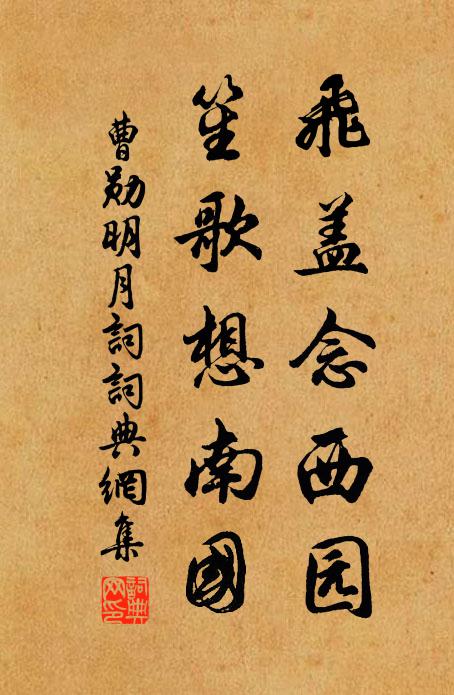 飛盖念西园
笙歌想南國
曹勛明月詞詞典網集
詞典
网印